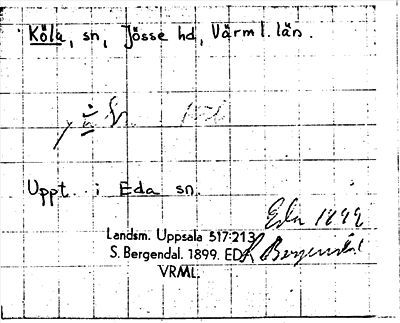 Köla, sn, Jösse hd, Värml. län.
Uppt. i Eda sn.
Eda 1899
Landsm. Uppsala 517:213
S. Bergendal. 1899. EDA
Bergendal
VRML.